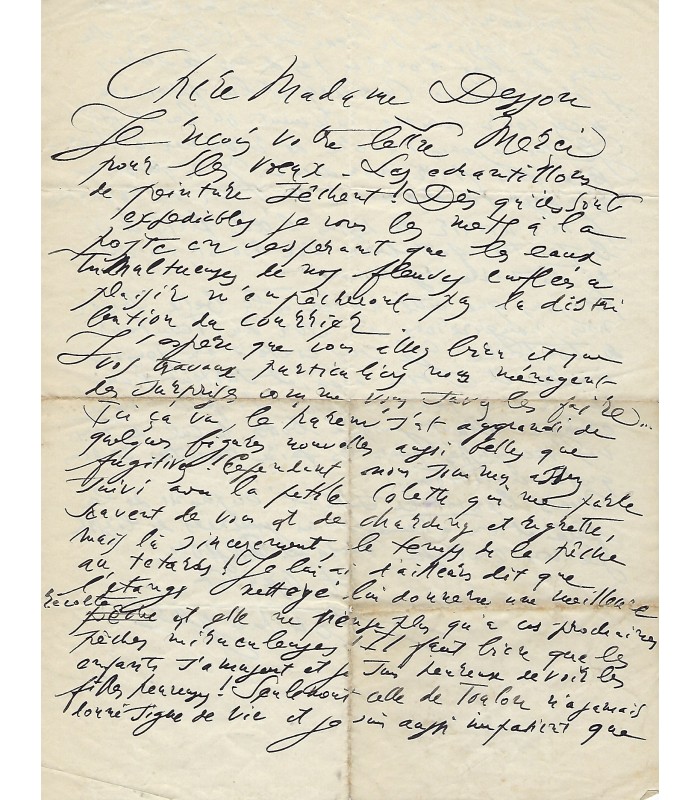 Chère Madame Desson
Je reçois votre lettre Merci
pour les voeux - Les echantillons
de peinture sêchent! Dès qu'ils sont
expediables je vous les mets à la
poste en esperant que les eaux
tumultueuses de nos fleuves enflés a
plaisir n'empêcheront pas la distri
bution du courrier.
J'espère que vous allez bien et que
vos travaux particuliers nous ménagent
des surprises comme vous savez les faire...
Ici ça va, le harem s'est aggrandi de
quelques figures nouvelles aussi belles que
fugitives! Cependant nous sommes assez
suivi avec la petite Colette qui me parle
souvent de vous et de et regrette,
mais là sincerement, le temps de la pêche
au tetards! Je lui ai d'ailleurs dit que
l'etang nettoyé lui donnera une meilleure
récolte
pêche et elle ne pense plus qu'a ces prochaines
pêches miraculeuses! Il faut bien que les
enfants s'amusent et je suis heureux de voir les
filles heureuses! Seulement celle de Toulon n'a jamais
donné signe de vie et je suis aussi impatient que